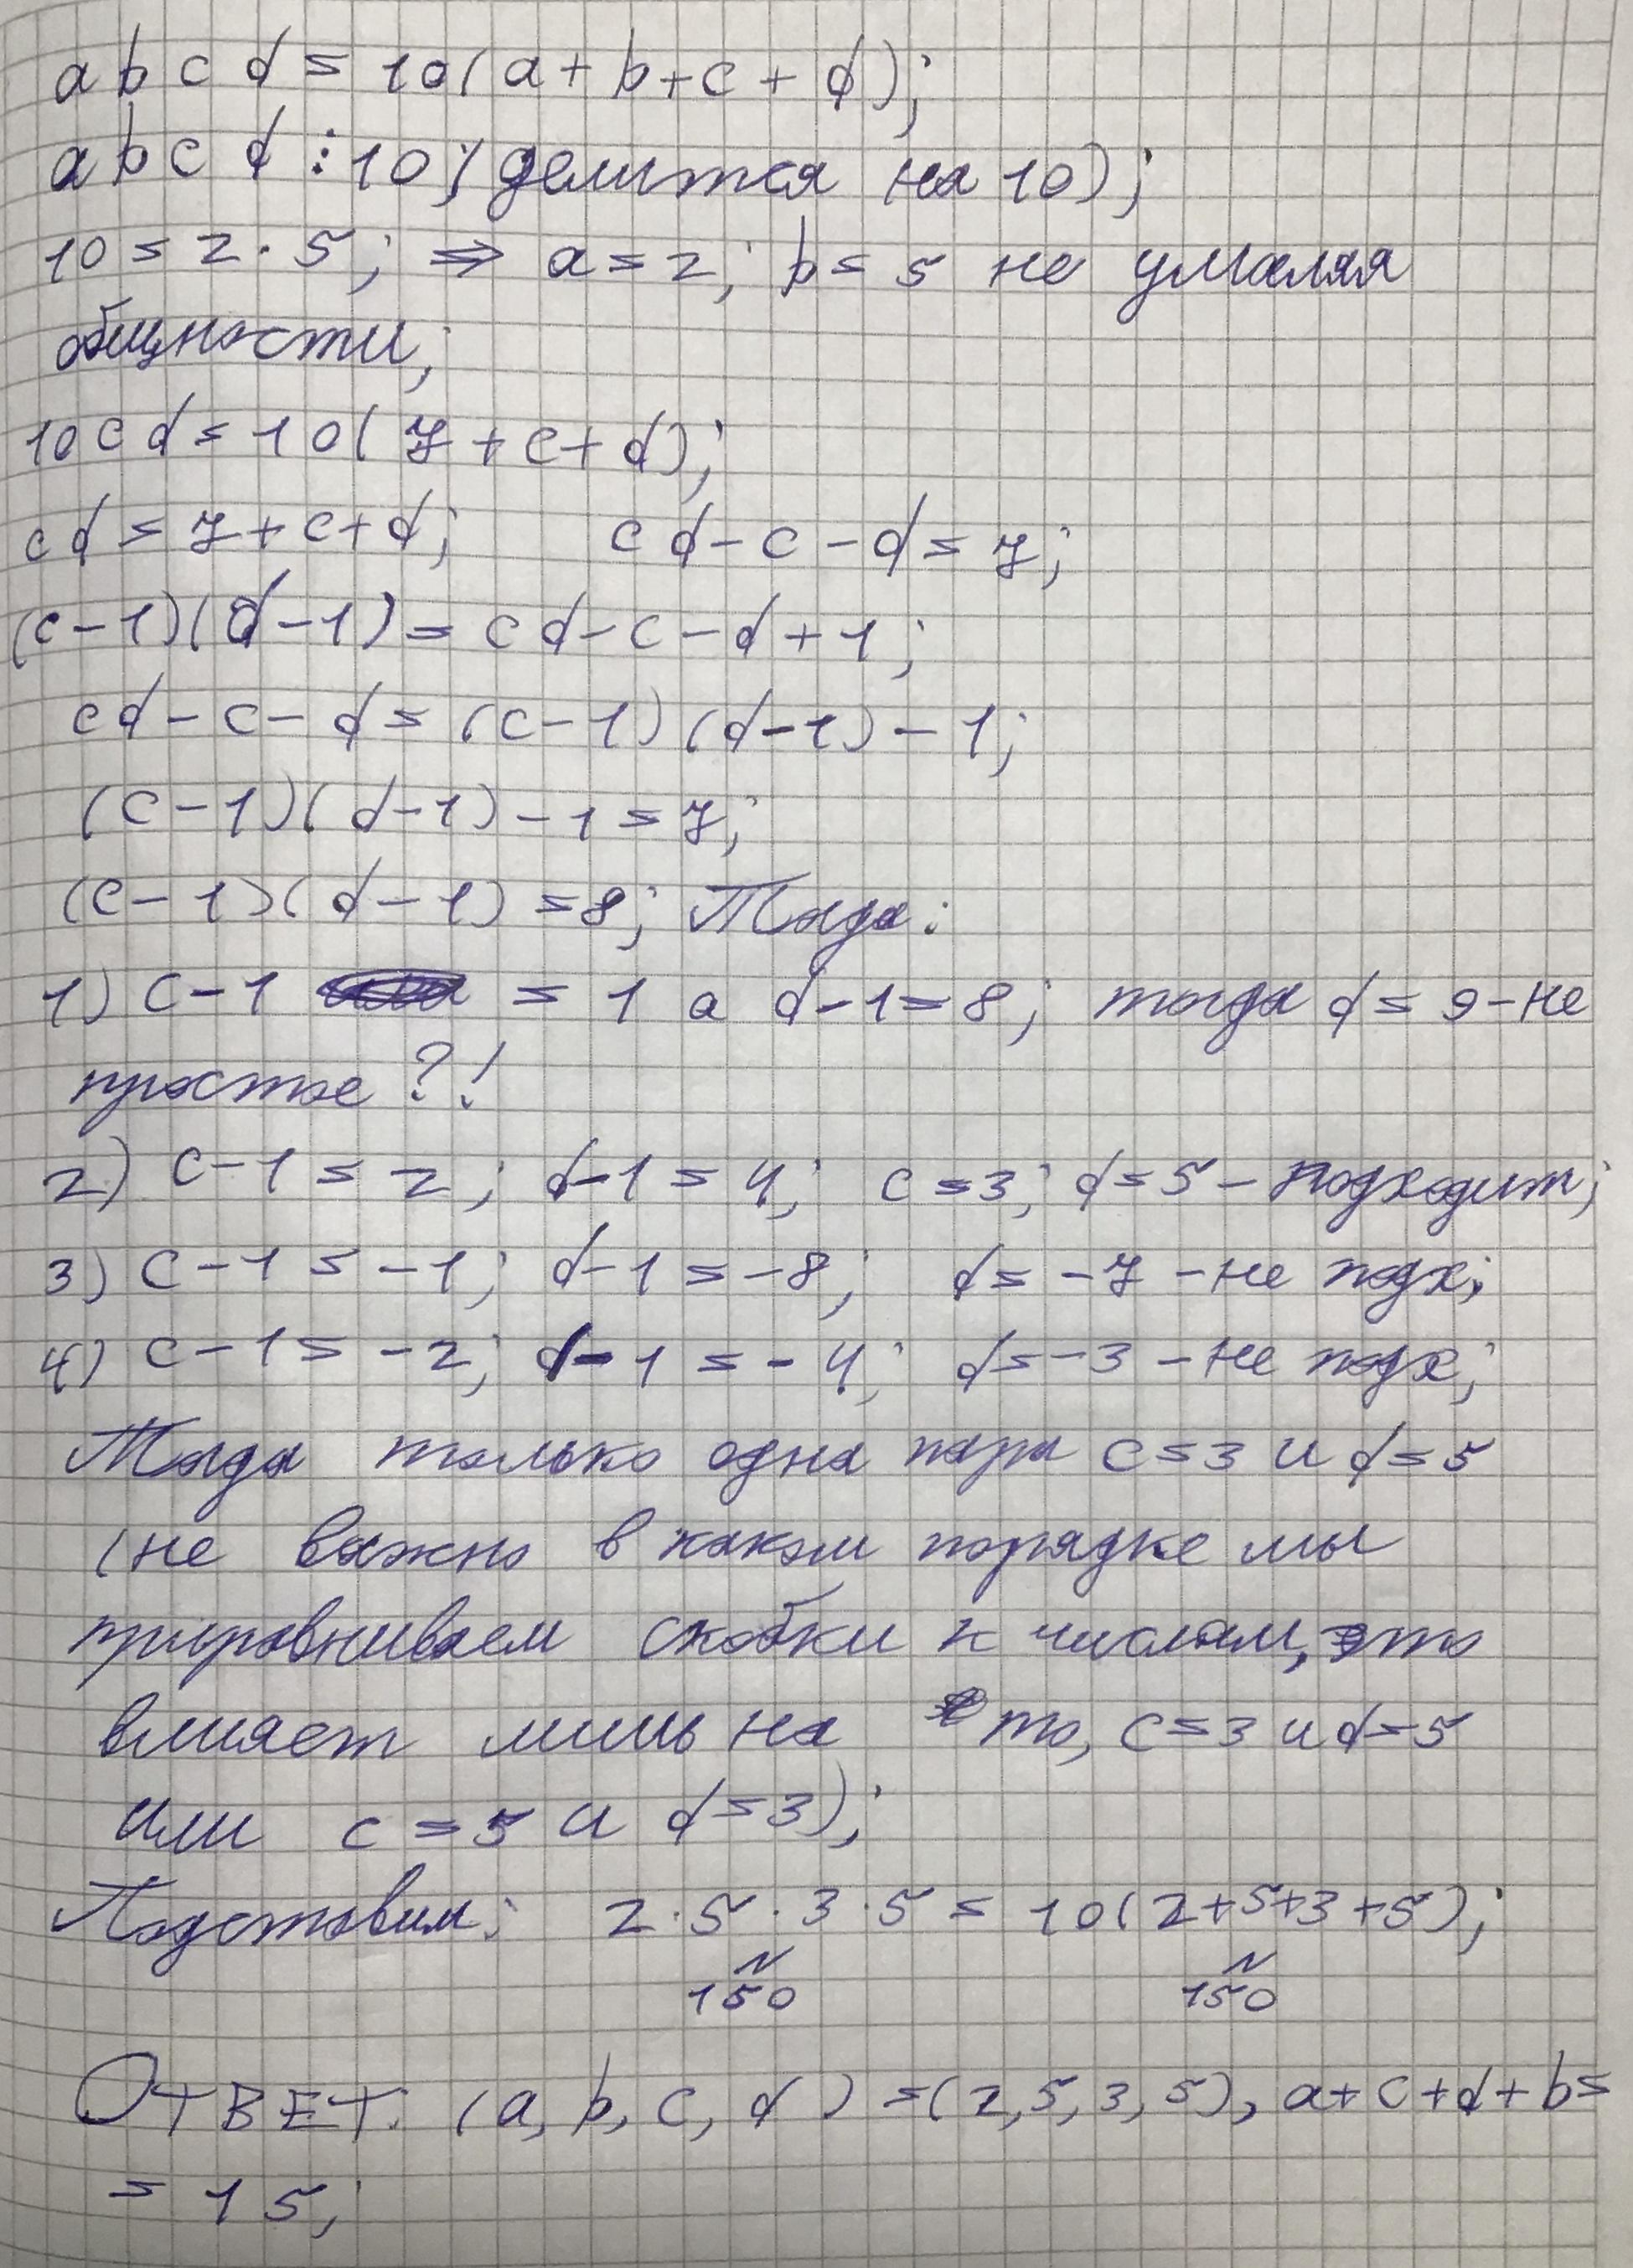 abcd = 10(a+b+c+d);
abcd ⋮ 10 (делится на 10);
10 = 2·5; ⇒ a=2; b=5 не умаляя
общности;
10cd = 10(7+c+d);
cd = 7+c+d; cd-c-d=7;
(c-1)(d-1)=cd-c-d+1;
cd-c-d=(c-1)(d-1)-1;
(c-1)(d-1)-1=7;
(c-1)(d-1)=8; Тогда:
1) c-1 = 1 а d-1=8; тогда d=9-не
простое?!
2) c-1=2; d-1=4; c=3; d=5-подходит;
3) c-1=-1; d-1=-8; d=-7-не подх;
4) c-1=-2; d-1=-4; d=-3-не подх;
Тогда только одна пара c=3 и d=5
(не важно в каком порядке мы
приравниваем скобки к числам, это
влияет лишь на то, c=3 и d=5
или c=5 и d=3);
Подставим: 2·5·3·5 = 10(2+5+3+5);
150 150
ОТВЕТ: (a,b,c,d)=(2,5,3,5), a+c+d+b=
= 15;